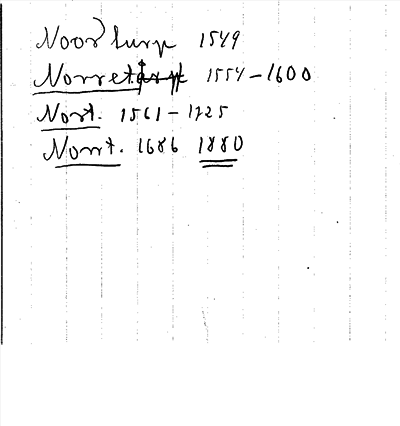 Noordurp 1549
Norret 1554-1600
Nort. 1561-1725
Norrt. 1686 1880